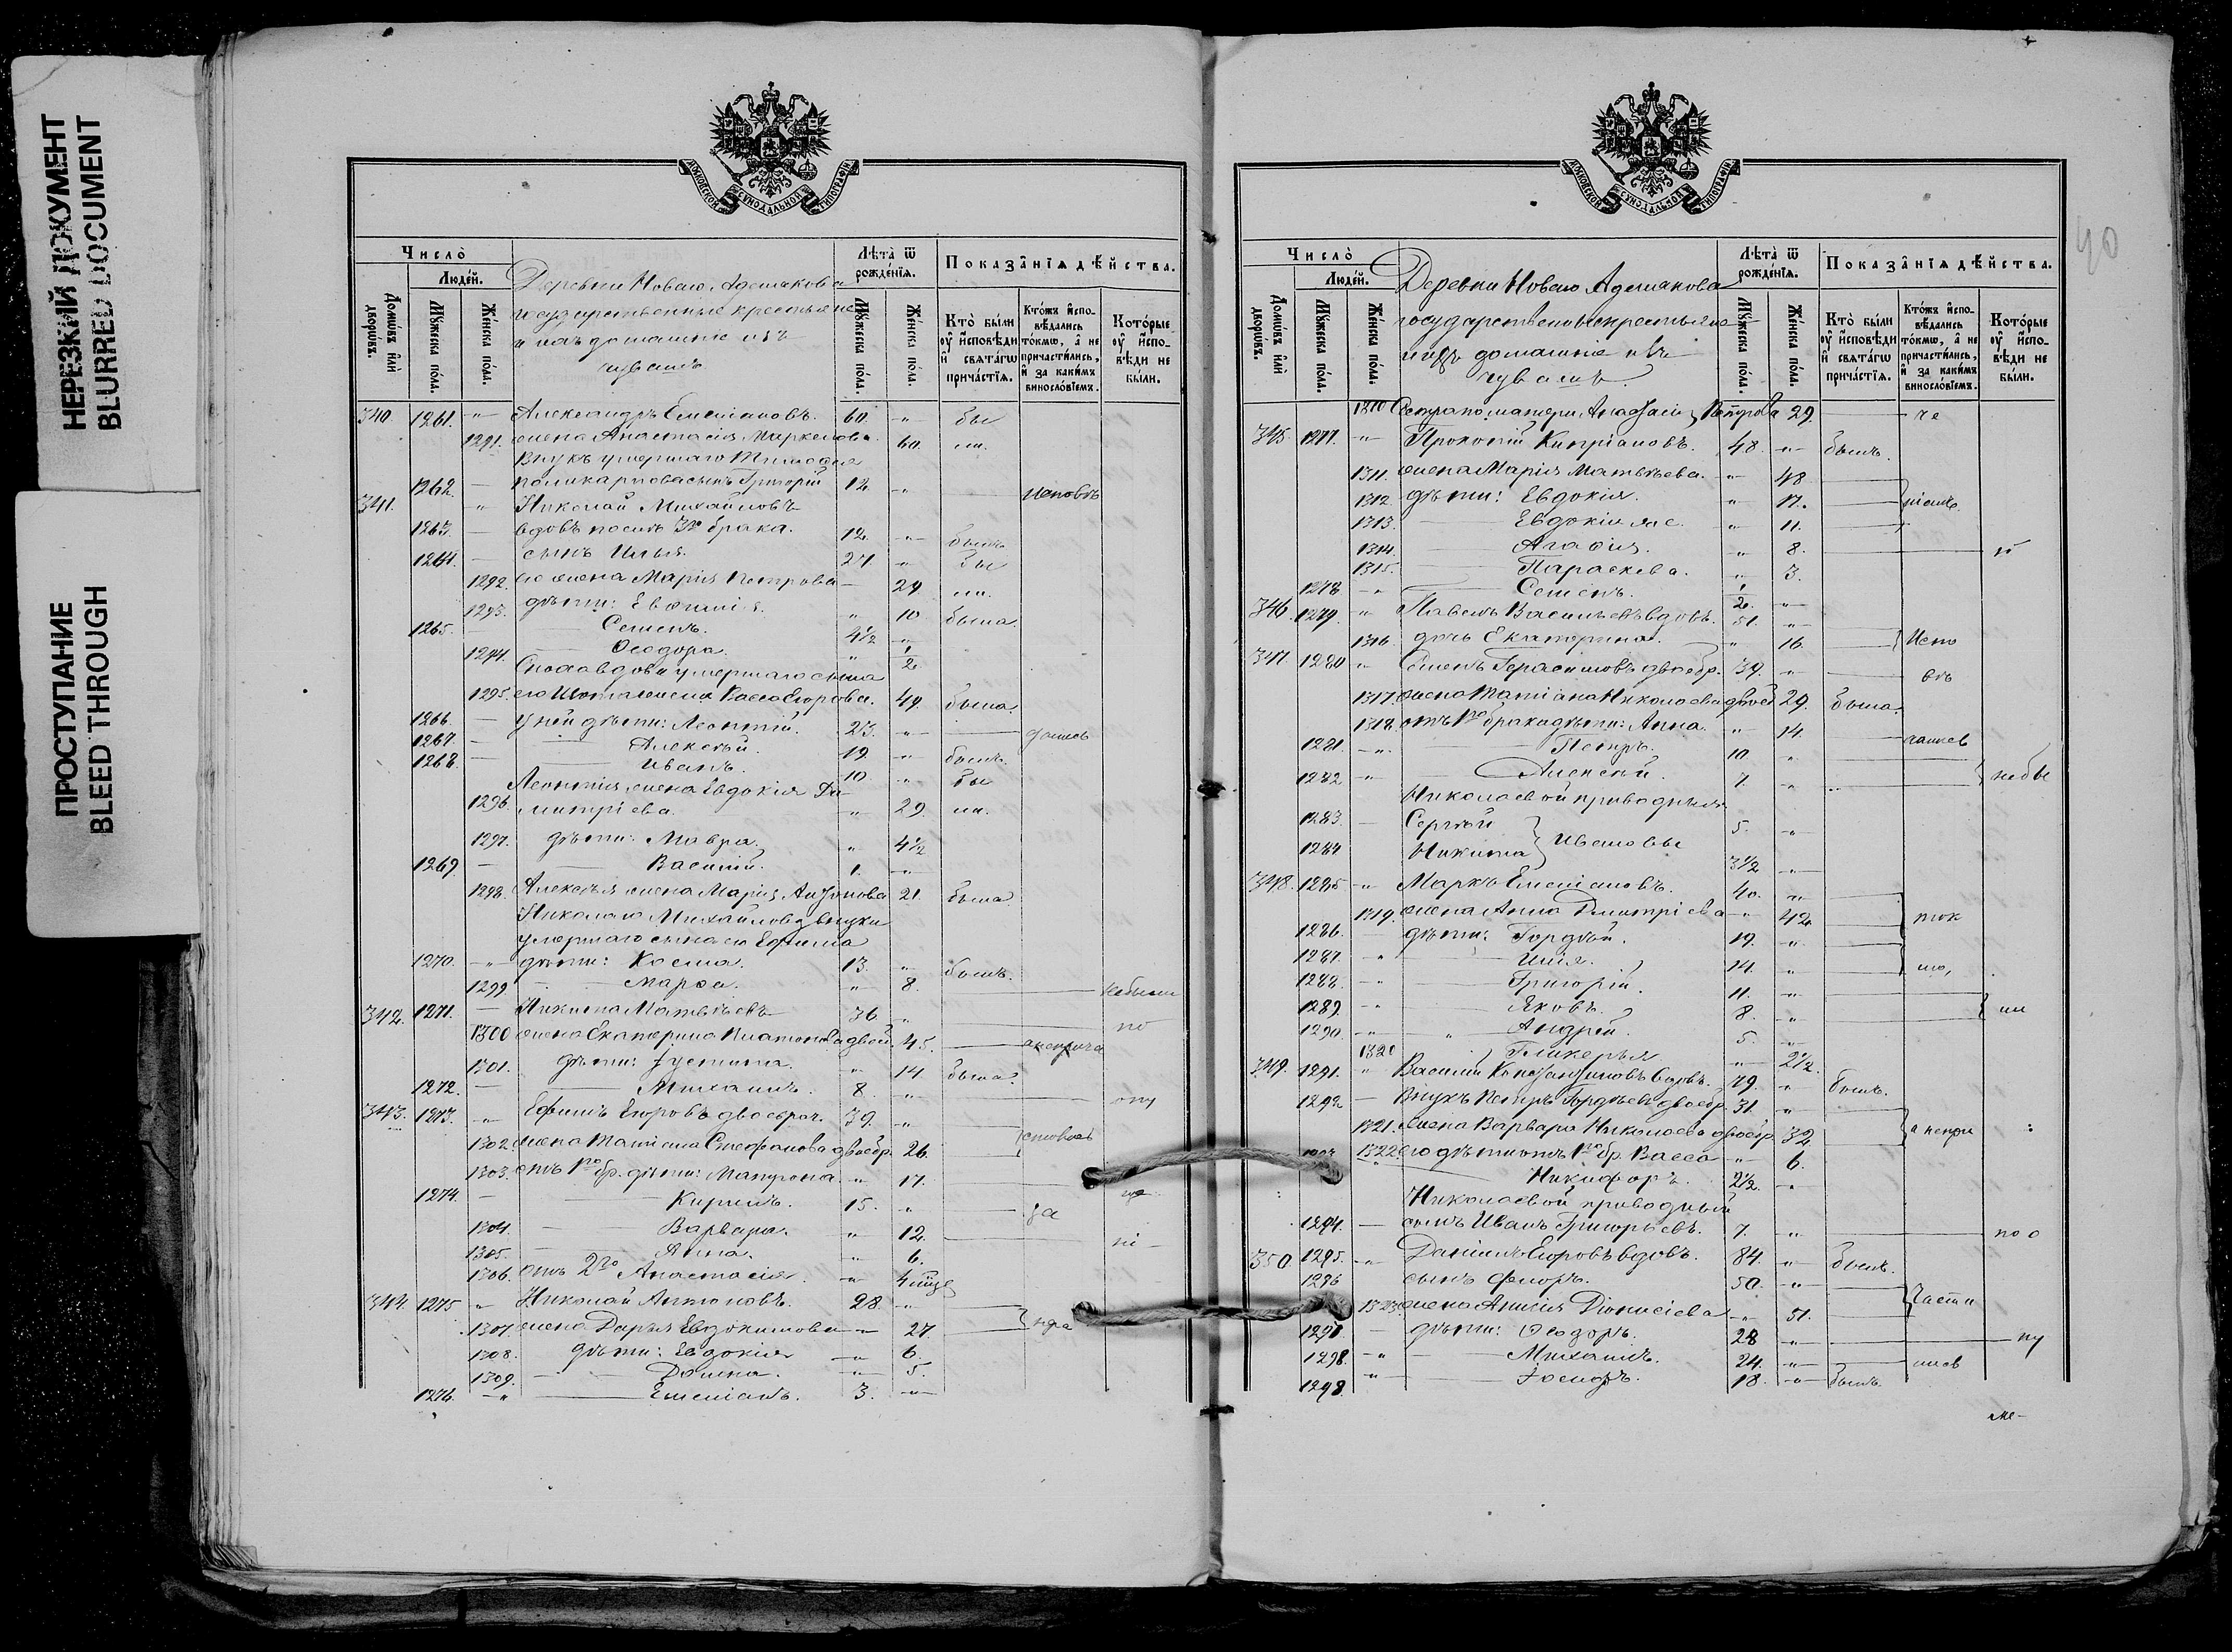 НЕРЕЗКИЙ ДОКУМЕНТ
BLURRED DOCUMENT
ПРОСТУПАНИЕ
BLEED THROUGH
МОСКОВСКОЙ СѴНОДАЛЬНОЙ ТИПОГРАФІИ
Число̀
Людей.
Домѡвъ или дворѡвъ.
Мꙋжеска пола.
Женска пола.
Деревни Новаго Адемакова
государственные крестьяне
и ихъ домашніе изъ
чувашъ
Лѣта̀ ѿ рожденїѧ.
Мꙋжеска пола.
Женска пола.
Показанїѧ дѣйства.
Кто̀ были оу исповѣди и свѧтагѡ причастїѧ.
Ктожъ исповѣдались токмѡ, а не причастились, и за какимъ винословїемъ.
Которые оу исповѣди не были.
340. 1261. -"- Александръ Емельяновъ. 60. -"- бы
1291. жена Анастасія Маркелова. 60. ли.
Внукъ умершаго Тимофея
1262. — Поликарпова сынъ Григорій 12. -"- исповѣ
341. " Николай Михайловъ
1263. — вдовъ послѣ 3го брака. 72. -"- былъ
1264. — сынъ Илья. 27. " бы
1292. его жена Марія Петрова — 29 ли.
1293. дѣти: Евфимія. " 10 была.
1265. — Семенъ. 4½ -"-
1294. Ѳеодора. " ½
Сноха вдова умершаго сына
1295. его Игнатія жена Васса Егорова. 49. была.
1266. — у ней дѣти: Леонтій. 23. -"- — дались
1267. — Алексѣй. 19. " былъ.
1268. — Иванъ. 10. " бы
Леонтія жена Евдокія Ди-
1296. митріева. -"- 29. ли.
1297. дѣти: Мавра. " 4½
1269. — Василій. 1. -"-
1298. Алексѣя жена Марія Антонова 21. была.
Николая Михайлова внуки
умершаго сына его Ефима
1270. -"- дѣти: Косма. 13. -"- былъ.
1299 Марѳа. -"- 8. — небыли
342. 1271. — Никита Матвѣевъ 36 -"- — по
1300 жена Екатерина Платонова двоеб. 45. — а неприча
1301. дѣти: Іустина. " 14. была.
1272. — Михаилъ. 8. -"- — опу
343. 1273. -"- Ефимъ Егоровъ двоебрач. 39. -"-
1302. жена Татіана Стефанова двоебр. 26. — стились
1303. отъ 1го бр. дѣти: Матрона. -"- 17.
1274. — Кирилъ. 15. " — за
1304. — Варвара. " 12. — ні-
1305. — Анна. " 6.
1306. отъ 2го Анастасія. -"-
344. 1275 " Николай Антоновъ. 28. -"-
1307. жена Дарья Евдокимова -"- 27.
1308. дѣти: Евдокія -"- 6.
1309. — Домна. -"- 5.
1276. -"- Емеліанъ. 3. -"-
40
МОСКОВСКОЙ СѴНОДАЛЬНОЙ ТИПОГРАФІИ
Число̀
Людей.
Домѡвъ или дворѡвъ.
Мꙋжеска пола.
Женска пола.
Деревни Новаго Адемакова
государственные крестьяне
и ихъ домашніе изъ
чувашъ.
Лѣта̀ ѿ рожденїѧ.
Мꙋжеска пола.
Женска пола.
Показанїѧ дѣйства.
Кто̀ были оу исповѣди и свѧтагѡ причастїѧ.
Ктожъ исповѣдались токмѡ, а не причастились, и за какимъ винословїемъ.
Которые оу исповѣди не были.
1310 Сестра по матери Анастасія Петрова 29. — че
345. 1277. -"- Прокопій Кипріановъ. 48. -"- былъ.
1311. жена Марія Матвѣева. -"- 48
1312. дѣти: Евдокія. " 17.
1313. — Евдокія же. " 11.
1314. — Агаѳія. " 8.
1315. — Параскева. -"- 3.
1278 -"- Семенъ. ½ -"-
346. 1279. -"- Павелъ Васильевъ вдовъ. 51. -"-
1316. дочь Екатерина. — " 16. Испо
347. 1280 " Семенъ Герасимовъ двоебр. 39. " — вѣ
1317. жена Татіана Николаева двоеб 29. была.
1318. отъ 1го брака дѣти: Анна. " 14.
1281. -"- — Петръ. 10 "
1282 -"- — Алексѣй. 7. -"- небы
Николаевой приводныя
1283. — Сергѣй 5. -"-
1284 Никита } Ивановы 3½ -"-
348. 1285 -"- Маркъ Емеліановъ. 40. -"-
1319. жена Анна Димитріева -"- 42 ток
1286. дѣти: Гордѣй. 19. -"-
1287. -"- Илія. 14. " мо,
1288. -"- Григорій. 11. -"-
1289. -"- Яковъ. 8. -"- ли
1290. -"- " Андрей. 5. -"-
1320 Гликерья -"- 2½
349. 1291. " Василій Константиновъ вдовъ. 79. " былъ.
1292 — Внукъ Петръ Гордѣевъ двоебр. 31. "
1321. жена Варвара Николаева двоебр. 32 а непри
1322 его дѣти отъ 1го бр. Васса -"- 6.
Никифоръ. 2½. -"-
Николаевой приводный
1294. — сынъ Иванъ Григорьевъ. 7. -"- — по о
350 1295. -"- Даніилъ Егоровъ вдовъ. 84. -"- былъ.
1296 сынъ Флоръ. 50. -"-
1323. жена Анисія Діонисіева -"- 51. части
1297. — дѣти: Ѳеодоръ. 28 " — пу
1298. -"- — Михаилъ. 24. -"- лись
1298. -"- 18. -"- былъ